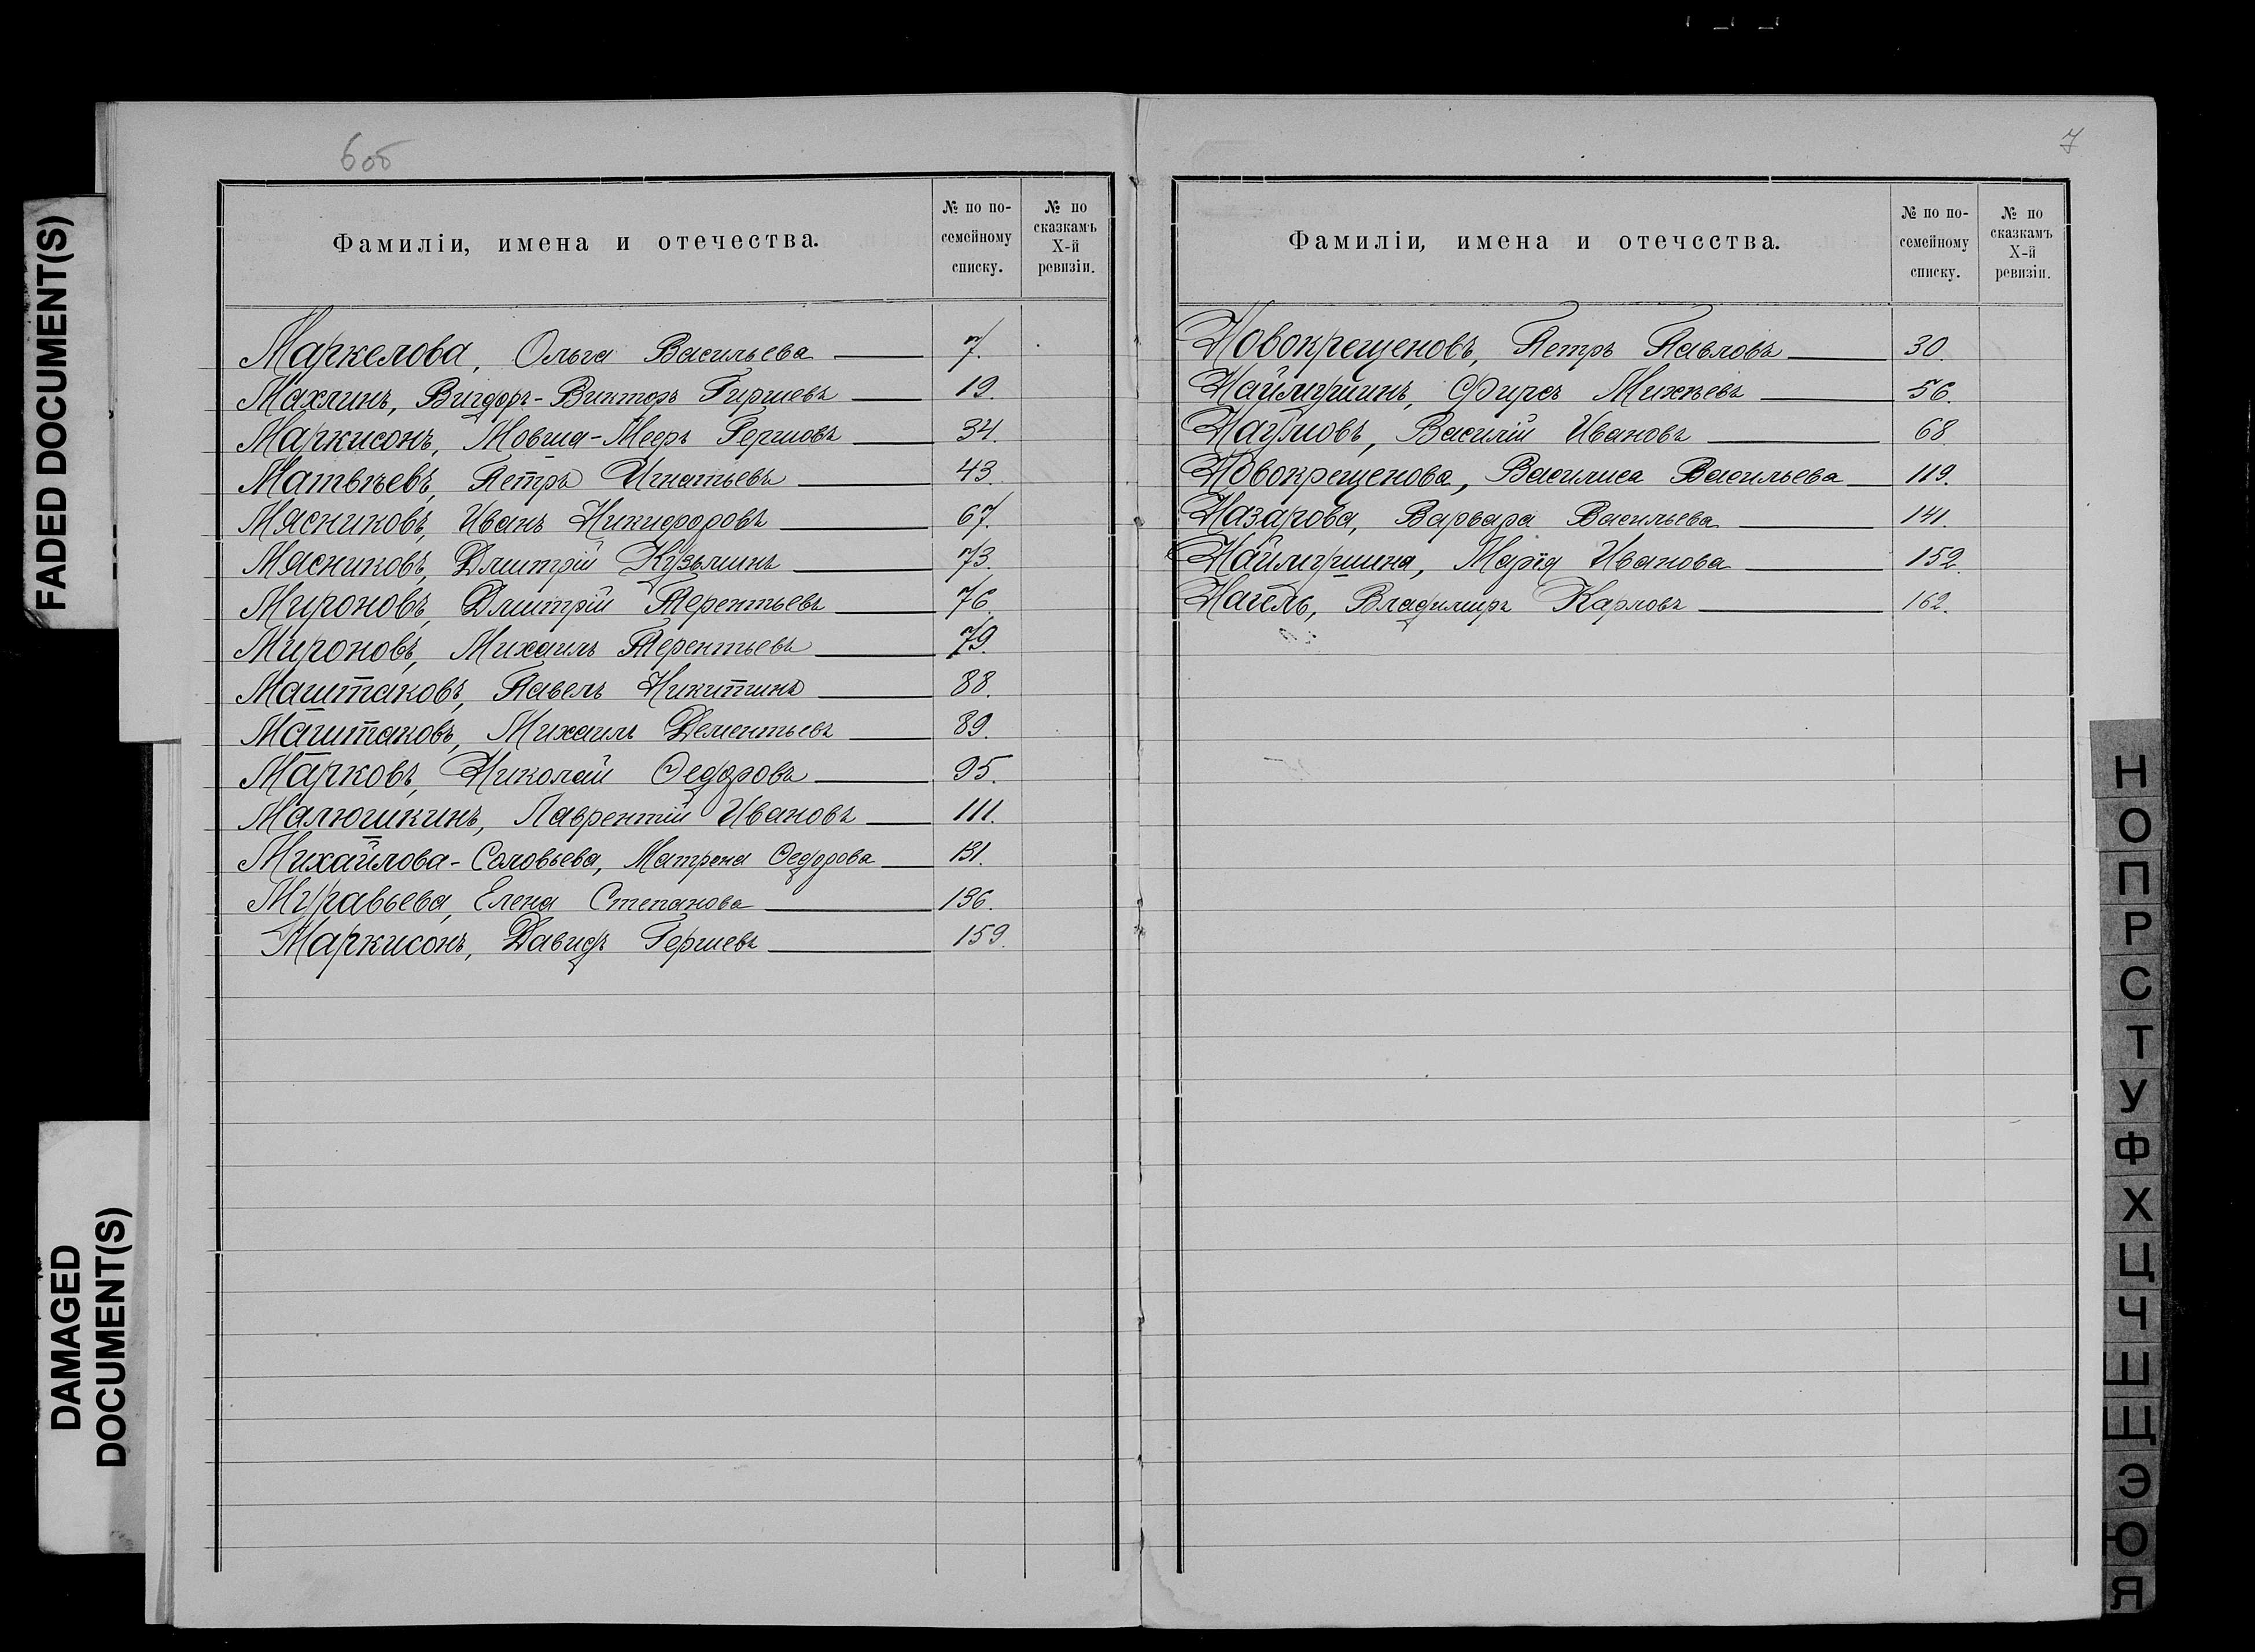 FADED DOCUMENT(S)
DAMAGED
DOCUMENT(S)
6об
Фамиліи, имена и отечества.
№ по по-
семейному
списку.
№ по
сказкамъ
X-й
ревизіи.
Маркелова, Ольга Васильева 7.
Махлинъ, Вигдоръ-Викторъ Гиршевъ 19.
Маркисонъ, Мовша-Мееръ Гершовъ 34.
Матвѣевъ, Петръ Игнатьевъ 43.
Мясниковъ, Иванъ Никифоровъ 67.
Мясниковъ, Дмитрій Кузьминъ 73.
Мироновъ, Дмитрій Терентьевъ 76.
Мироновъ, Михаилъ Терентьевъ 79.
Маштаковъ, Павелъ Никитинъ 88.
Маштаковъ, Михаилъ Дементьевъ 89.
Марковъ, Николай Ѳедоровъ 95.
Малюшкинъ, Лаврентій Ивановъ 111.
Михайлова-Соловьева, Матрена Ѳедорова 131.
Муравьева, Елена Степанова 136.
Маркисонъ, Давидъ Гершевъ 159.
7
Фамиліи, имена и отечества.
№ по по-
семейному
списку.
№ по
сказкамъ
X-й
ревизіи.
Новокрещеновъ, Петръ Павловъ 30.
Наймушинъ, Фирсъ Михѣевъ 56.
Наумовъ, Василій Ивановъ 68.
Новокрещенова, Василиса Васильева 119.
Назарова, Варвара Васильева 141.
Наймушина, Марія Иванова 152.
Нагель, Владиміръ Карловъ 162.
Н
О
П
Р
С
Т
У
Ф
Х
Ц
Ч
Ш
Щ
Э
Ю
Я